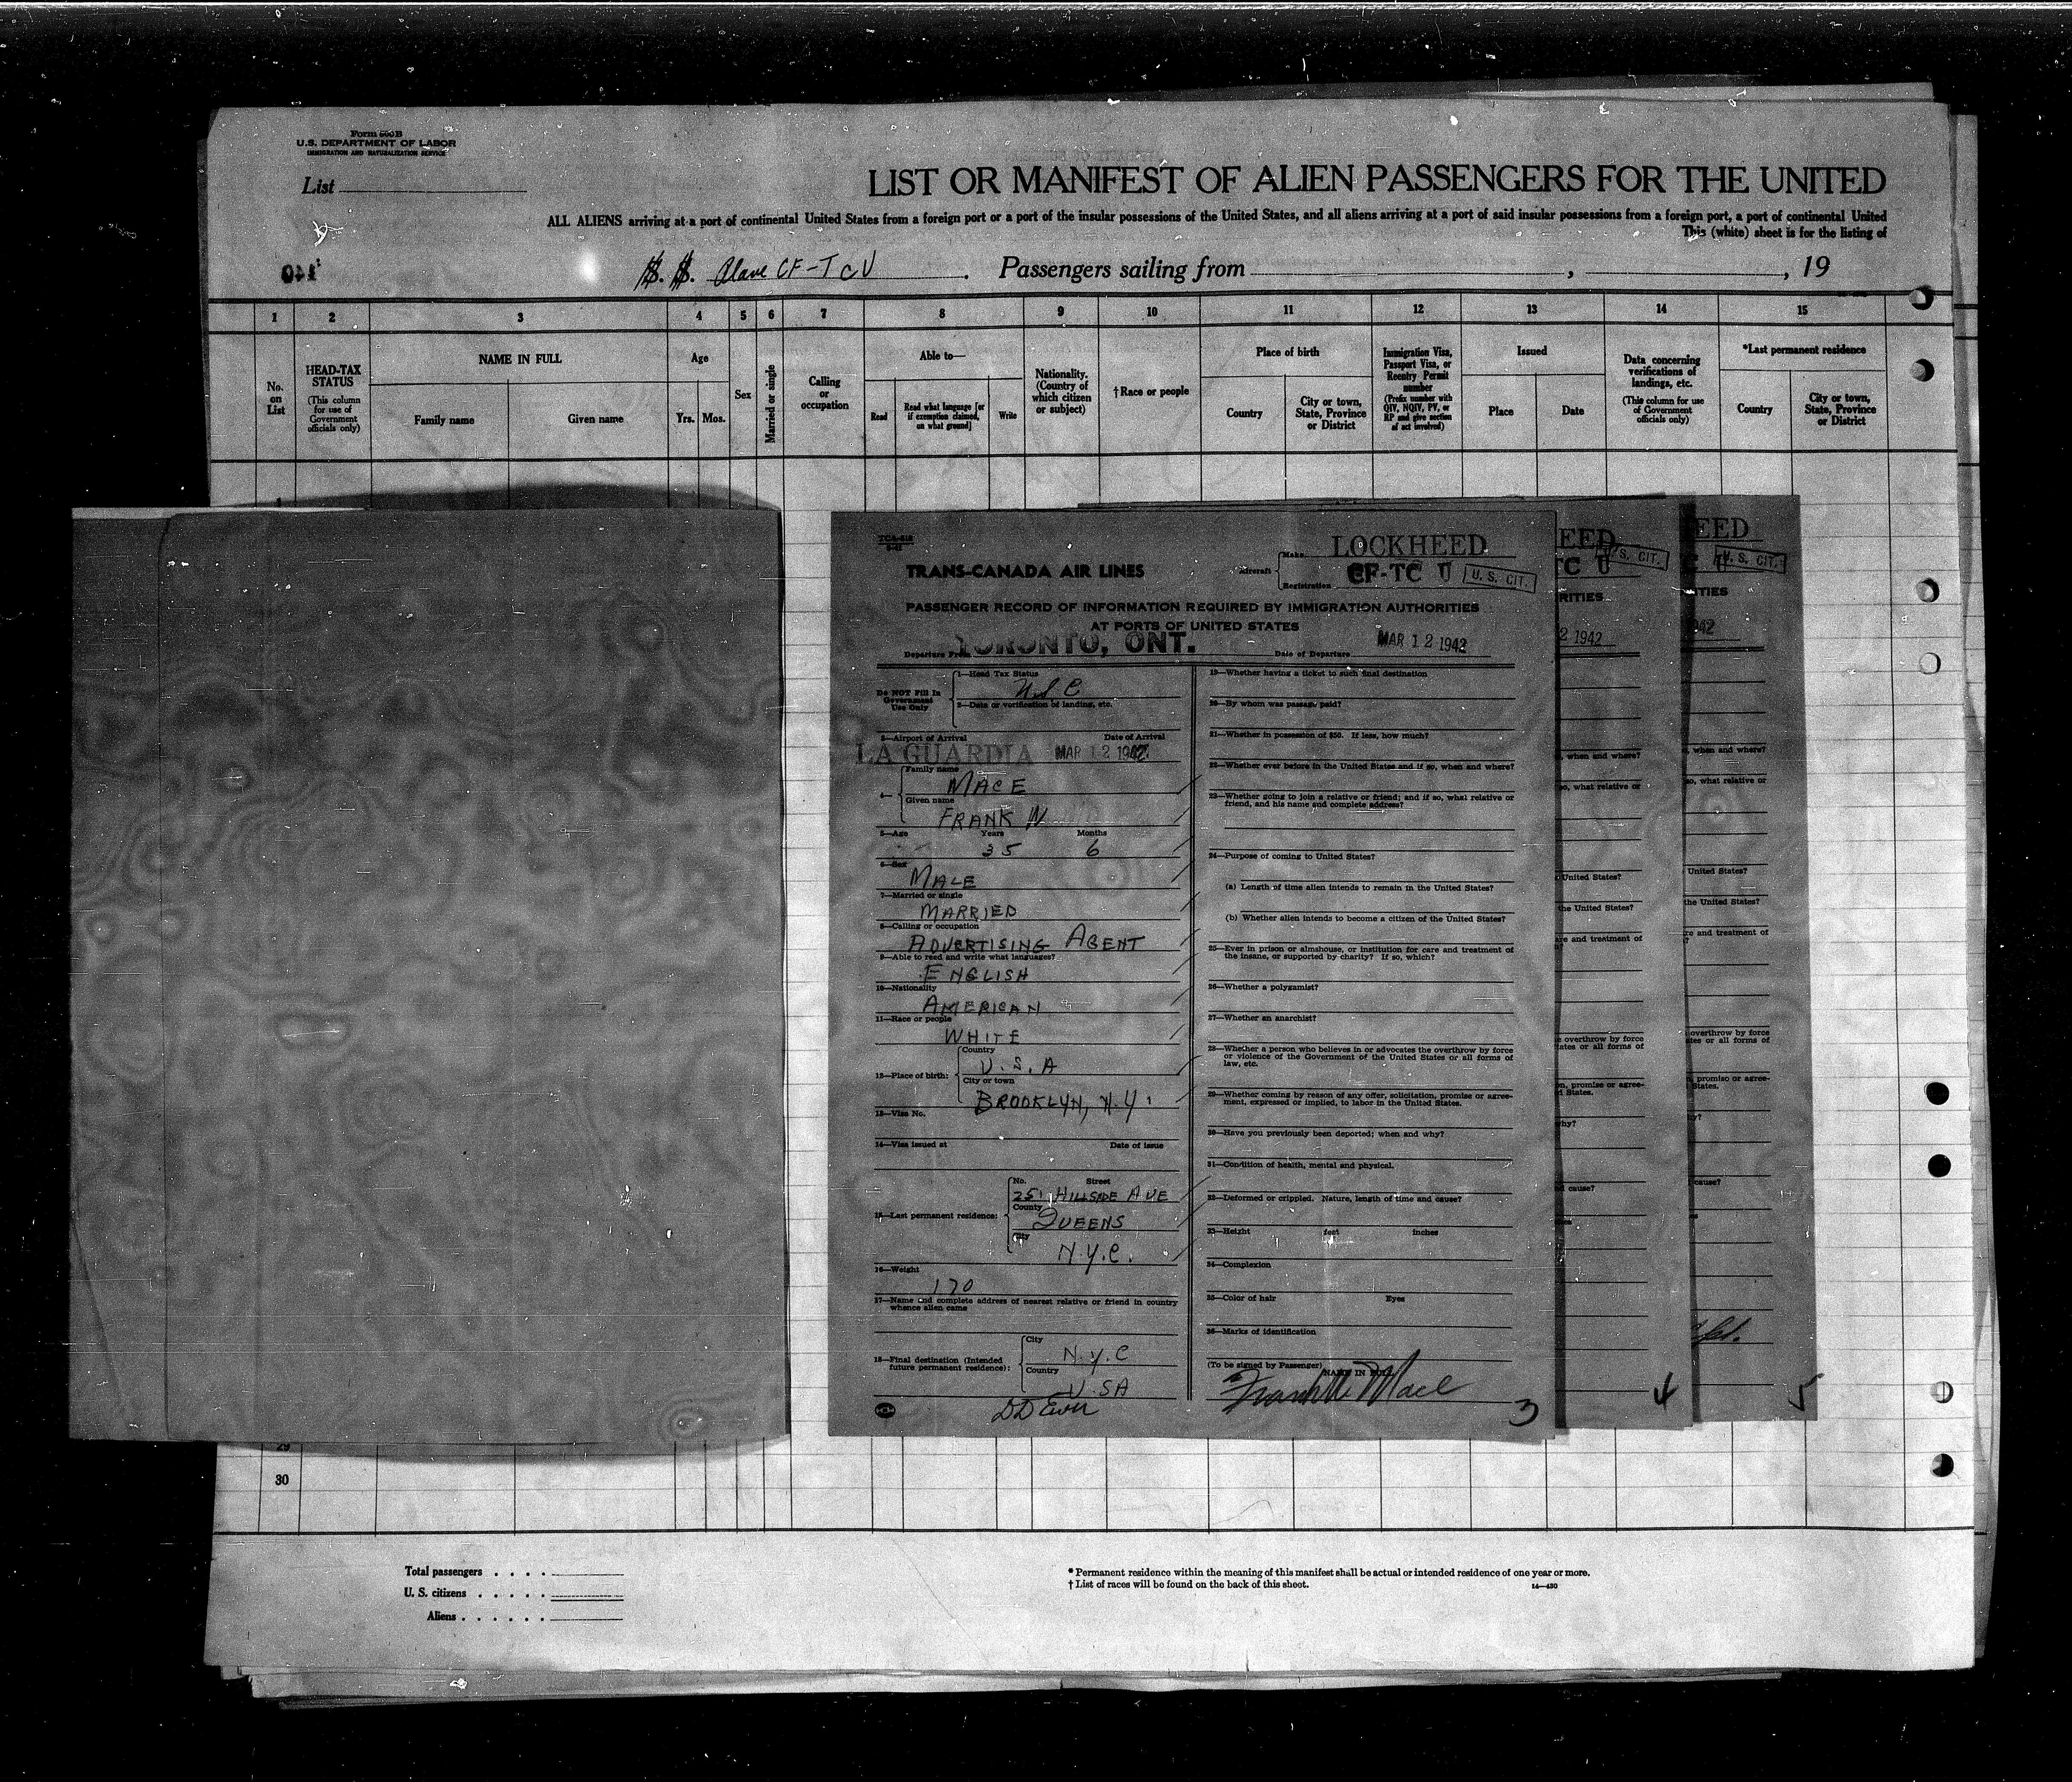 Form 500B
U.S. DEPARTMENT OF LABOR
IMMIGRATION AND NATURALIZATION SERVICE
List
LIST OR MANIFEST OF ALIEN PASSENGERS FOR THE UNITED
ALL ALIENS arriving at a port of continental United States from a foreign port or a port of the insular possessions of the United States, and all aliens arriving at a port of said insular possessions from a foreign port, a port of continental United
This (white) sheet is for the listing of
S. S. Plane CF-TCU . Passengers sailing from , , 19
1 2 3 4 5 6 7 8 9 10 11 12 13 14 15
No. on List
HEAD-TAX STATUS
(This column for use of Government officials only)
NAME IN FULL
Family name Given name
Age
Yrs. Mos.
Sex
Married or single
Calling or occupation
Able to—
Read
Read what language [or if exemption claimed, on what ground]
Write
Nationality. (Country of which citizen or subject)
†Race or people
Place of birth
Country
City or town, State, Province or District
Immigration Visa, Passport Visa, or Reentry Permit number
(Prefix number with QIV, NQIV, PV, or RP and give section of act involved)
Issued
Place Date
Data concerning verifications of landings, etc.
(This column for use of Government officials only)
*Last permanent residence
Country
City or town, State, Province or District
TRANS-CANADA AIR LINES
Aircraft
Make LOCKHEED
Registration CF-TC U
U. S. CIT.
PASSENGER RECORD OF INFORMATION REQUIRED BY IMMIGRATION AUTHORITIES
AT PORTS OF UNITED STATES
Departure From TORONTO, ONT. Date of Departure MAR 12 1942
Do NOT Fill In
Government
Use Only
1—Head Tax Status
U S C
2—Data or verification of landing, etc.
3—Airport of Arrival Date of Arrival
LA GUARDIA MAR 12 1942
4—
Family name
MACE
Given name
FRANK W
5—Age Years Months
35 6
6—Sex
MALE
7—Married or single
MARRIED
8—Calling or occupation
ADVERTISING AGENT
9—Able to read and write what languages?
ENGLISH
10—Nationality
AMERICAN
11—Race or people
WHITE
12—Place of birth:
Country
U.S.A
City or town
BROOKLYN, N.Y.
13—Visa No.
14—Visa issued at Date of issue
15—Last permanent residence:
No. Street
251 HILLSIDE AVE
County
QUEENS
City
N.Y.C.
16—Weight
170
17—Name and complete address of nearest relative or friend in country
whence alien came
18—Final destination (Intended
future permanent residence):
City
N.Y.C
Country
U.SA
19—Whether having a ticket to such final destination
20—By whom was passage paid?
21—Whether in possession of $50. If less, how much?
22—Whether ever before in the United States and if so, when and where?
23—Whether going to join a relative or friend; and if so, what relative or
friend, and his name and complete address?
24—Purpose of coming to United States?
(a) Length of time alien intends to remain in the United States?
(b) Whether alien intends to become a citizen of the United States?
25—Ever in prison or almshouse, or institution for care and treatment of
the insane, or supported by charity? If so, which?
26—Whether a polygamist?
27—Whether an anarchist?
28—Whether a person who believes in or advocates the overthrow by force
or violence of the Government of the United States or all forms of
law, etc.
29—Whether coming by reason of any offer, solicitation, promise or agree-
ment, expressed or implied, to labor in the United States.
30—Have you previously been deported; when and why?
31—Condition of health, mental and physical.
32—Deformed or crippled. Nature, length of time and cause?
33—Height feet inches
34—Complexion
35—Color of hair Eyes
36—Marks of identification
(To be signed by Passenger)
NAME IN FULL
Frank W. Mace
3
4
5
29
30
Total passengers
U. S. citizens
Aliens
* Permanent residence within the meaning of this manifest shall be actual or intended residence of one year or more.
† List of races will be found on the back of this sheet.
14—430